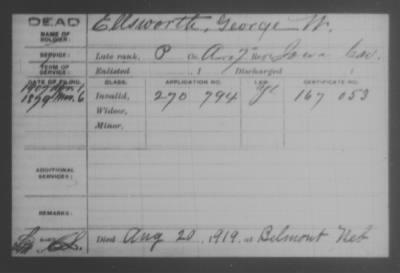 DEAD
NAME OF SOLDIER: Ellsworth, George W.
SERVICE: Late rank, P Co. A and Iowa Cav.
TERM OF SERVICE: Enlisted , 1 Discharged , 1
DATE OF FILING. CLASS. APPLICATION NO. LAW. CERTIFICATE NO.
1907
1879 6 Invalid, 270 794 167 053
Widow,
Minor,
ADDITIONAL SERVICES:
REMARKS:
Died Aug 20, 1919, at Belmont Neb